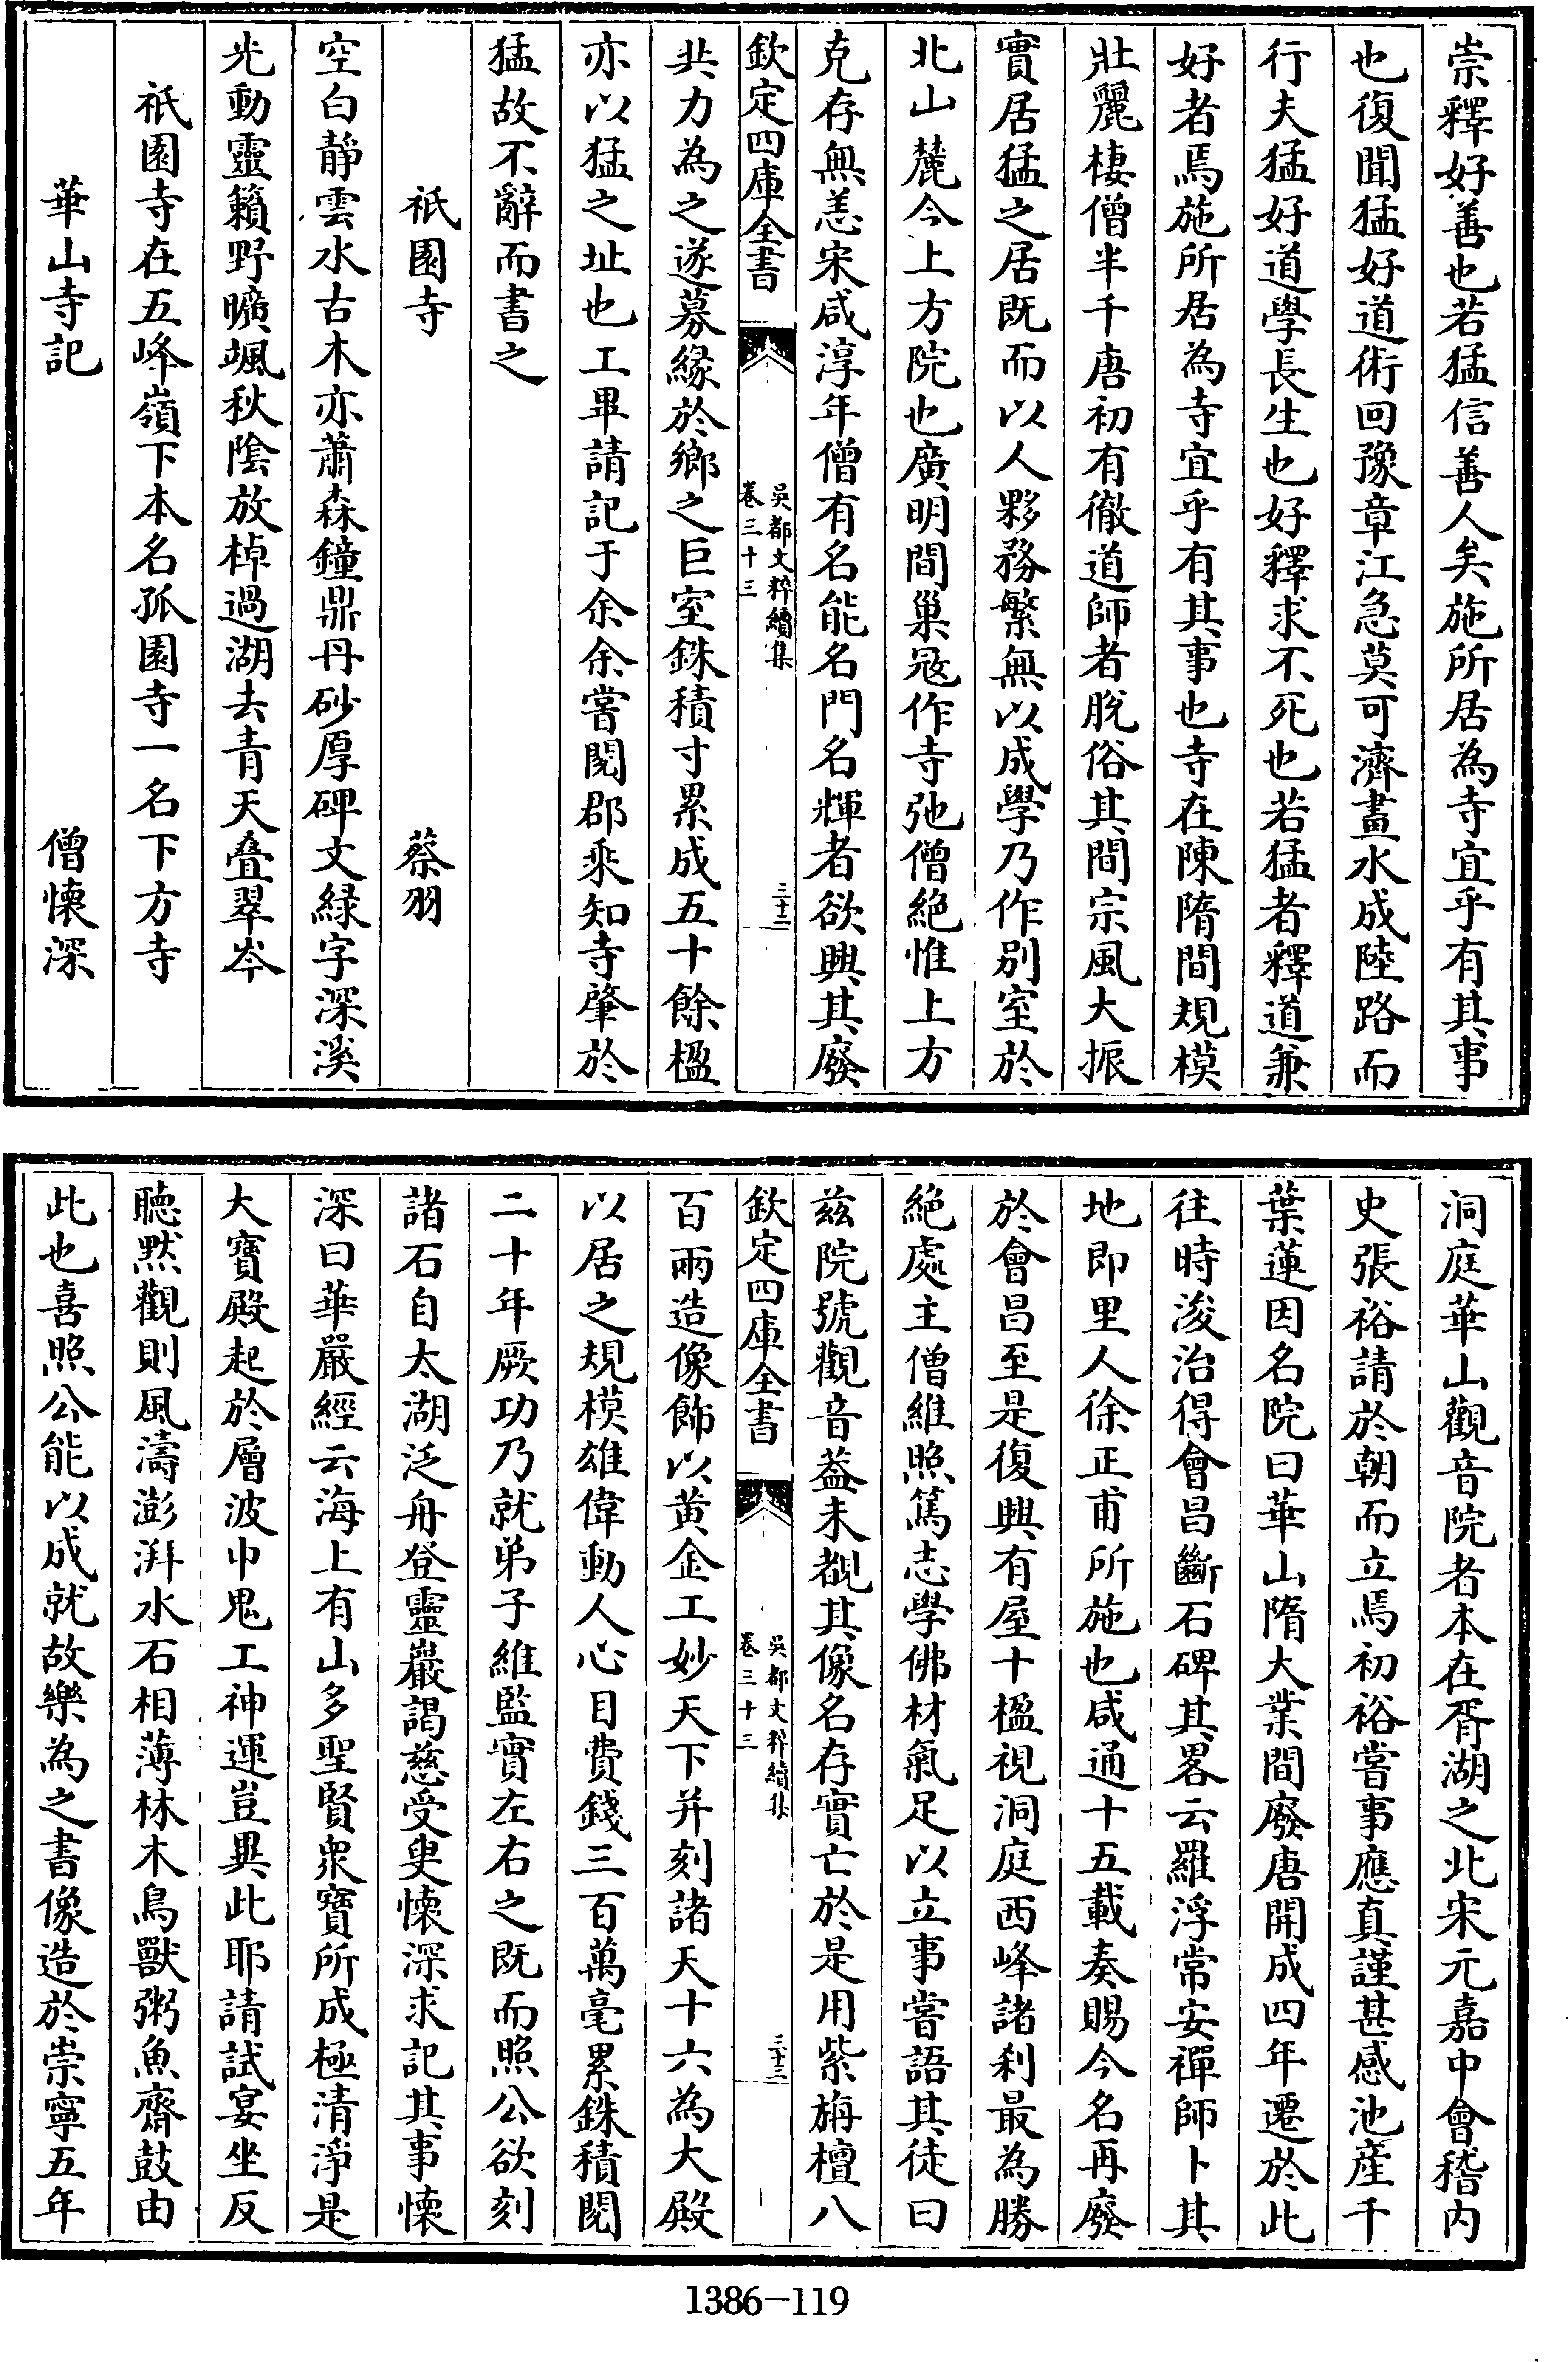 崇釋好善也若猛信善人矣施所居為寺宜乎有其事
也復聞猛好道術回豫章江急莫可濟畫水成陸路而
行夫猛好道學長生也好釋求不死也若猛者釋道兼
好者焉施所居為寺宜乎有其事也寺在陳隋間規模
壯麗棲僧半千唐初有徹道師者脫俗其間宗風大振
實居猛之居既而以人夥務繁無以成學乃作別室於
北山麓今上方院也廣明間巢冦作寺弛僧絕惟上方
克存無恙宋咸淳年僧有名能名門名輝者欲興其廢
欽定四庫全書
吳都文粹續集
卷三十三
三十二
共力為之遂募緣於鄉之巨室銖積寸累成五十餘楹
亦以猛之址也工畢請記于余余嘗閱郡乘知寺肇於
猛故不辭而書之
祇園寺 蔡羽
空白靜雲水古木亦蕭森鐘鼎丹砂厚碑文緑字深溪
光動靈籟野曠颯秋陰放棹過湖去青天叠翠岑
祇園寺在五峰嶺下本名孤園寺一名下方寺
華山寺記 僧懷深
洞庭華山觀音院者本在胥湖之北宋元嘉中會稽内
史張裕請於朝而立焉初裕嘗事應真謹甚感池產千
葉蓮因名院曰華山隋大業間廢唐開成四年遷於此
往時浚治得會昌斷石碑其畧云羅浮常安禪師卜其
地即里人徐正甫所施也咸通十五載奏賜今名再廢
於會昌至是復興有屋十楹視洞庭西峰諸利最為勝
絕處主僧維照篤志學佛材氣足以立事嘗語其徒曰
兹院號觀音葢未覩其像名存實亡於是用紫栴檀八
欽定四庫全書
吳都文粹續集
卷三十三
三十三
百兩造像飾以黄金工妙天下并刻諸天十六為大殿
以居之規模雄偉動人心目費錢三百萬毫累銖積閱
二十年厥功乃就弟子維監實左右之既而照公欲刻
諸石自太湖泛舟登靈巖謁慈受叟懷深求記其事懷
深曰華嚴經云海上有山多聖賢衆寶所成極清淨是
大寶殿起於層波中鬼工神運豈異此耶請試宴坐反
聽默觀則風濤澎湃水石相薄林木鳥獸粥魚齋鼓由
此也喜照公能以成就故樂為之書像造於崇寧五年
1386-119